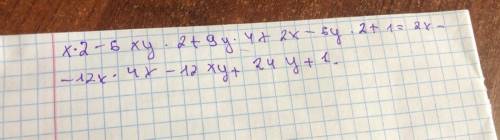 x·2-6xy·2+9y·4+2x-6y·2+1=2x-
-12x·4x-12xy+24y+1.